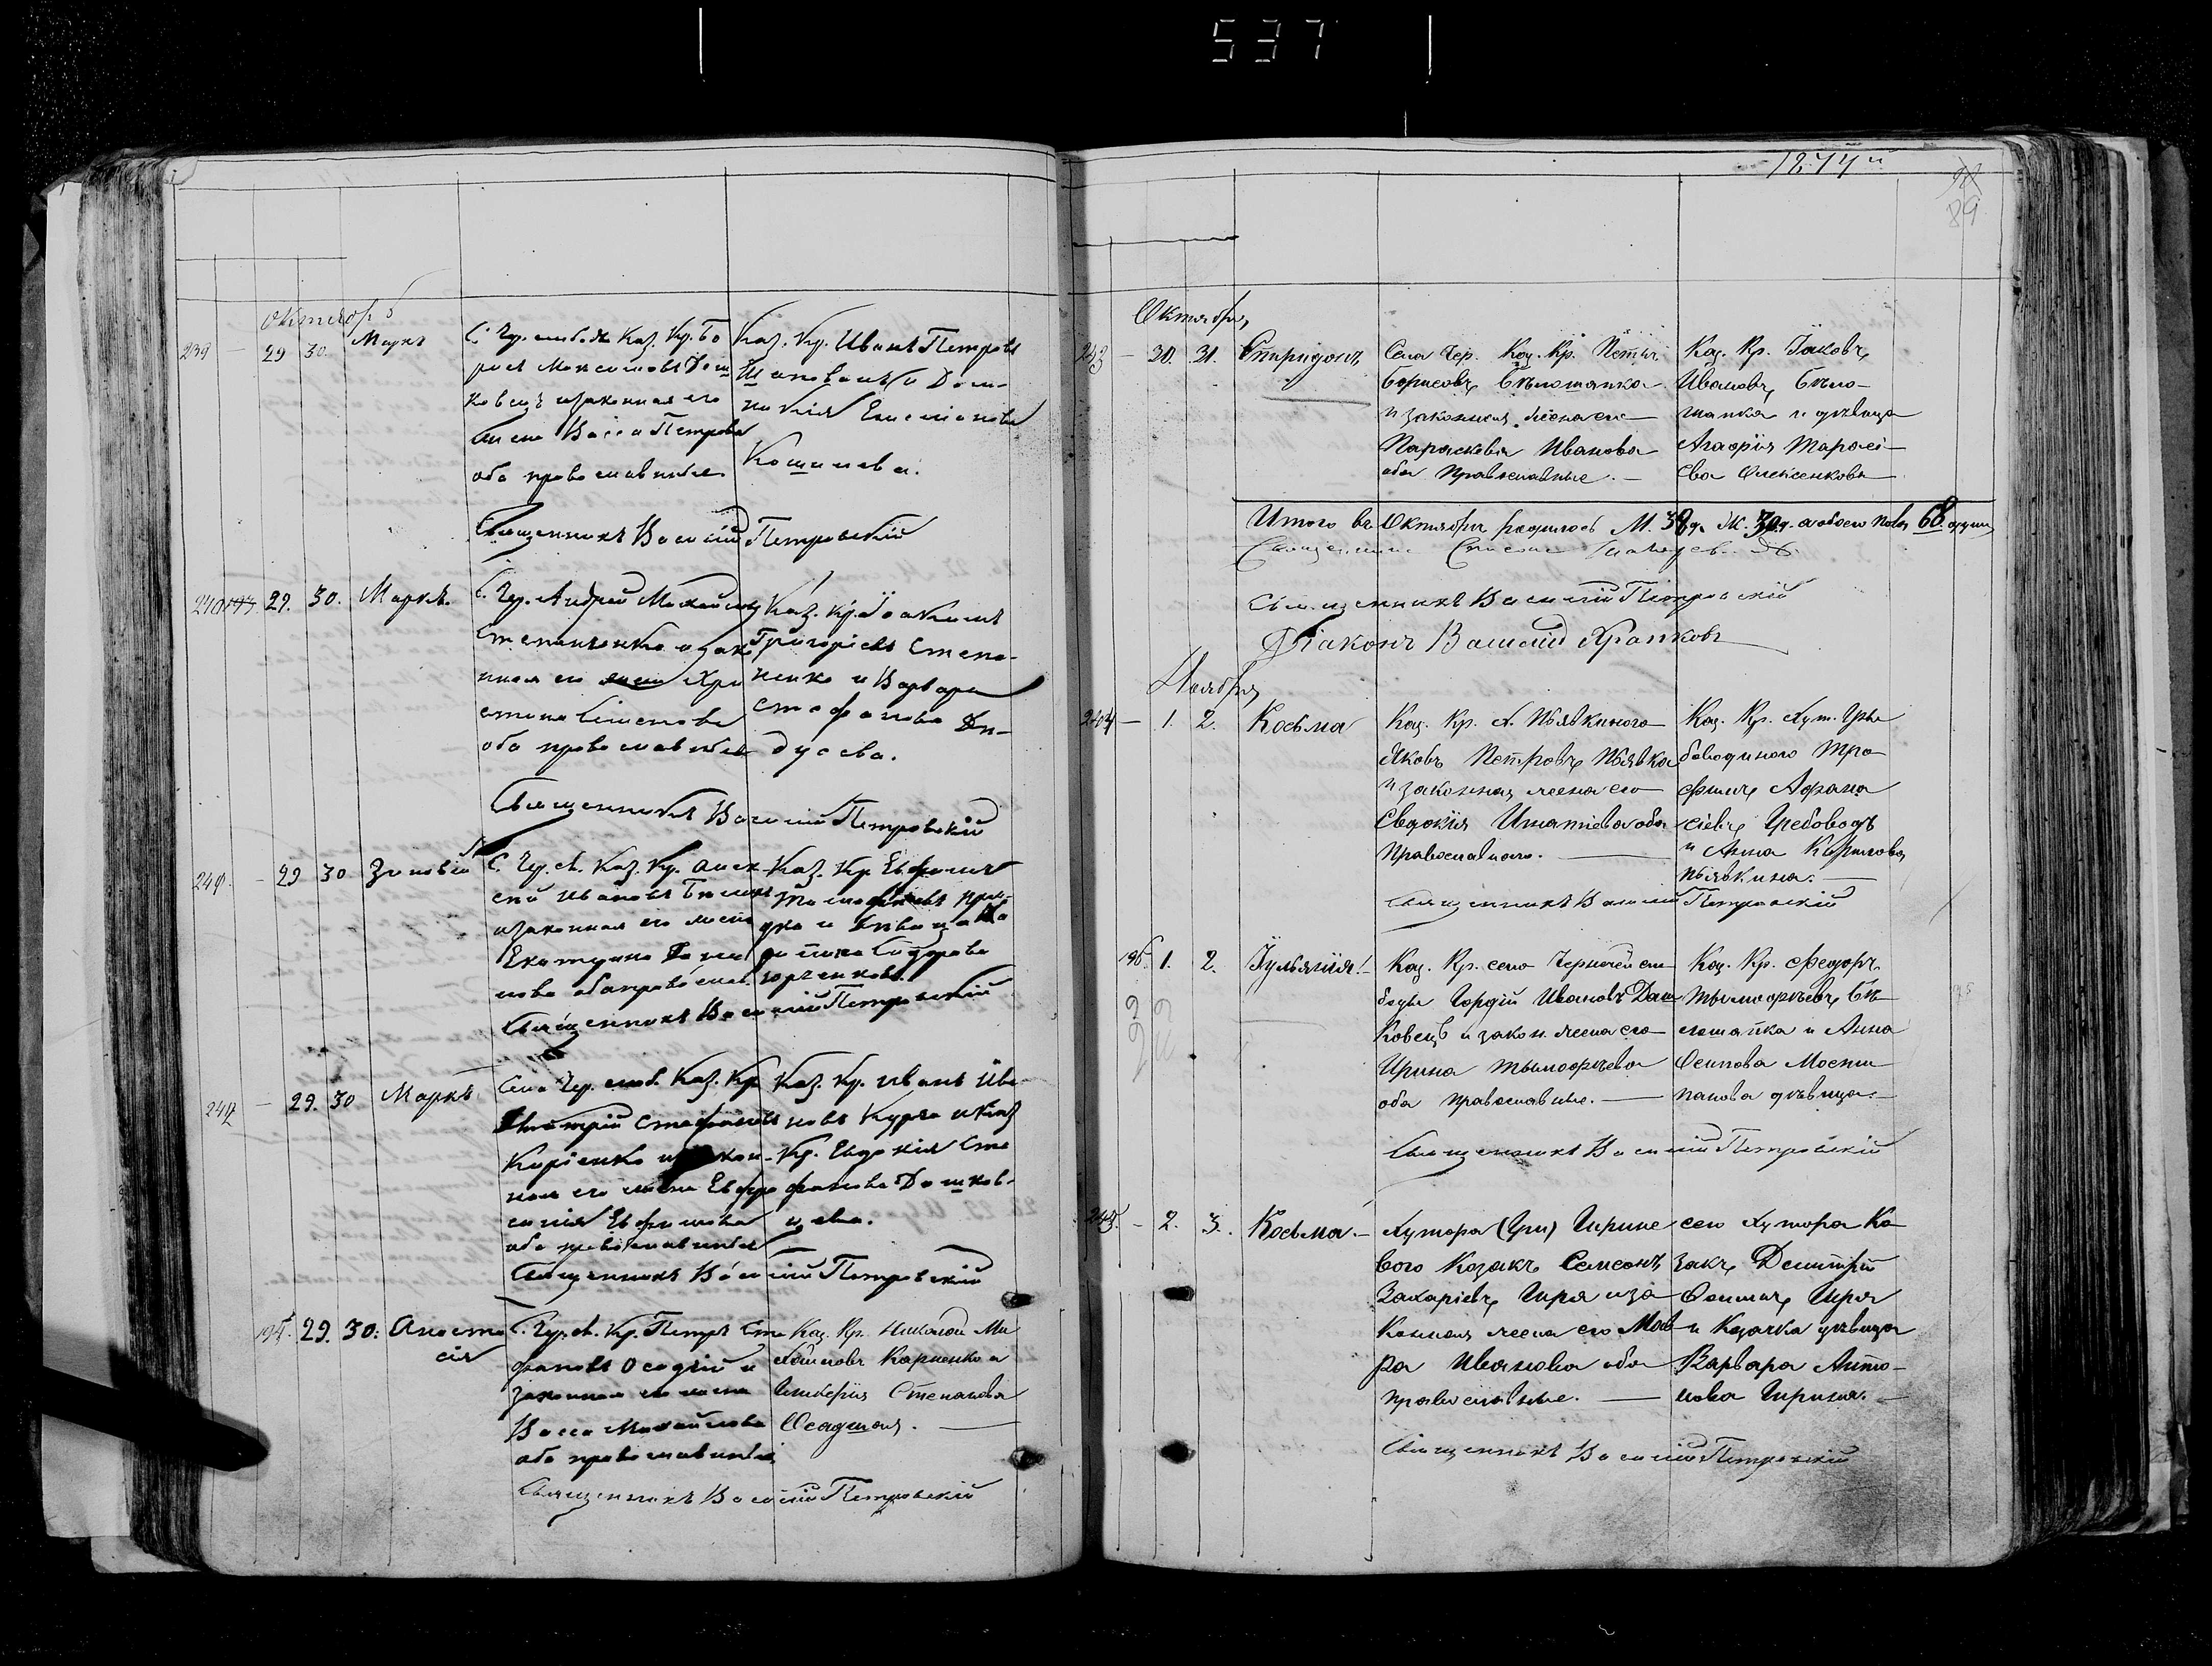 537
1874й
89
Октябрь
239 29 30. Маркъ
С. Чер. слободы Каз. Кр. Бо
рисъ Максимовъ Даш
ковецъ и законная его
жена Васса Петрова
оба православные
Каз. Кр. Иванъ Петровъ
Шаповалъ и Дом-
никія Емельянова
Кошилева.
Священникъ Василій Петровскій
240 29. 30. Маркъ.
С. Чер. Андрей Михайловъ
Степаненко и зако
нная его жена Хри
стина Семенова
оба православные
Каз. Кр. Іоакимъ
Григорьевъ Степа-
ненко и Варвара
Стефанова Ди-
дусева.
Священникъ Василій Петровскій
241. 29 30 Зиновій
С. Чер. сл. Каз. Кр. Алек
сій Ивановъ
и законная его жена
Екатерина
нова оба православ.
Каз. Кр. Евфимій
Тимофеевъ При-
дка и дѣвица
Сидорова
Священникъ Василій Петровскій
242 29. 30 Маркъ.
Села Чер. слоб. Каз. Кр
Дмитрій Стефановъ
Кирієнко и закон-
ная его жена Евфро
синія Ефимова
оба православные
Каз. Кр. Иванъ Ива-
новъ Курга и Каз.
Кр. Евдокія Сте
фанова Дашков-
цева.
Священникъ Василій Петровскій
194. 29. 30. Анаста
сія
С. Чер. сл. Кр. Петръ Сте
фановъ Осадчій и
законная его жена
Васса Михайлова
оба православные
Каз. Кр. Николай Ми
хайловъ Карпенко и
Гликерія Степанова
Осадшая.
Священникъ Василій Петровскій
Октябрь
243 30. 31. Спиридонъ
Села Чер. Каз. Кр. Петръ
Борисовъ Бѣлошапка
и законная жена его
Параскевія Иванова
оба Православные.
Каз. Кр. Іаковъ
Ивановъ Бѣло-
шапка и дѣвица
Агафія Тарасі-
ева Олексенкова
Итого въ Октябрѣ родилось М. 38 д. Ж. 30 д. а обоего пола 68 душъ
Священникъ
Священникъ Василій Петровскій
Діаконъ Василій Храпковъ
Ноябрь
244 1. 2. Косьма
Каз. Кр. х. Піявкиного
Яковъ Петровъ Піявка
и законная жена его
Евдокія Игнатіева оба
Православного.
Каз. Кр. Хут. Гре
боводиного Тро
фимъ Афана
сіевъ Гребоводъ
и Анна Кирилова
Піявкина.
Священникъ Василій Петровскій
195. 1. 2. Іульянія.
Каз. Кр. села Чернечей сло
боды Гордій Ивановъ Даш
ковецъ и закон. жена его
Ирина Тымофѣева
оба православные.
Каз. Кр. Федоръ
Тымофѣевъ Бѣ
лошапка и Анна
Осипова Мости
панова дѣвица.
Священникъ Василій Петровскій
245. 2. 3. Косьма.
Хутора (Гри) Гирине
вого Козакъ Семеонъ
Захаріевъ Гиря и за
конная жена его Мав
ра Иванова оба
православные.
сего хутора Ко
закъ Димитрій
Фоминъ Гиря
и Козачка дѣвица
Варвара Анто-
нова Гирина.
Священникъ Василій Петровскій